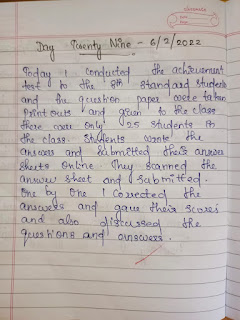 Day Twenty Nine - 6/2/2022
Today I conducted the achievement
test to the 8th standard students
and the question paper were taken
printouts and given to the class
there were only 25 students in
the class. Students wrote the
answers and submitted their answer
sheets online. They scanned the
answer sheet and submitted.
One by one I corrected the
answers and gave their scores
and also discussed the
questions and answers.